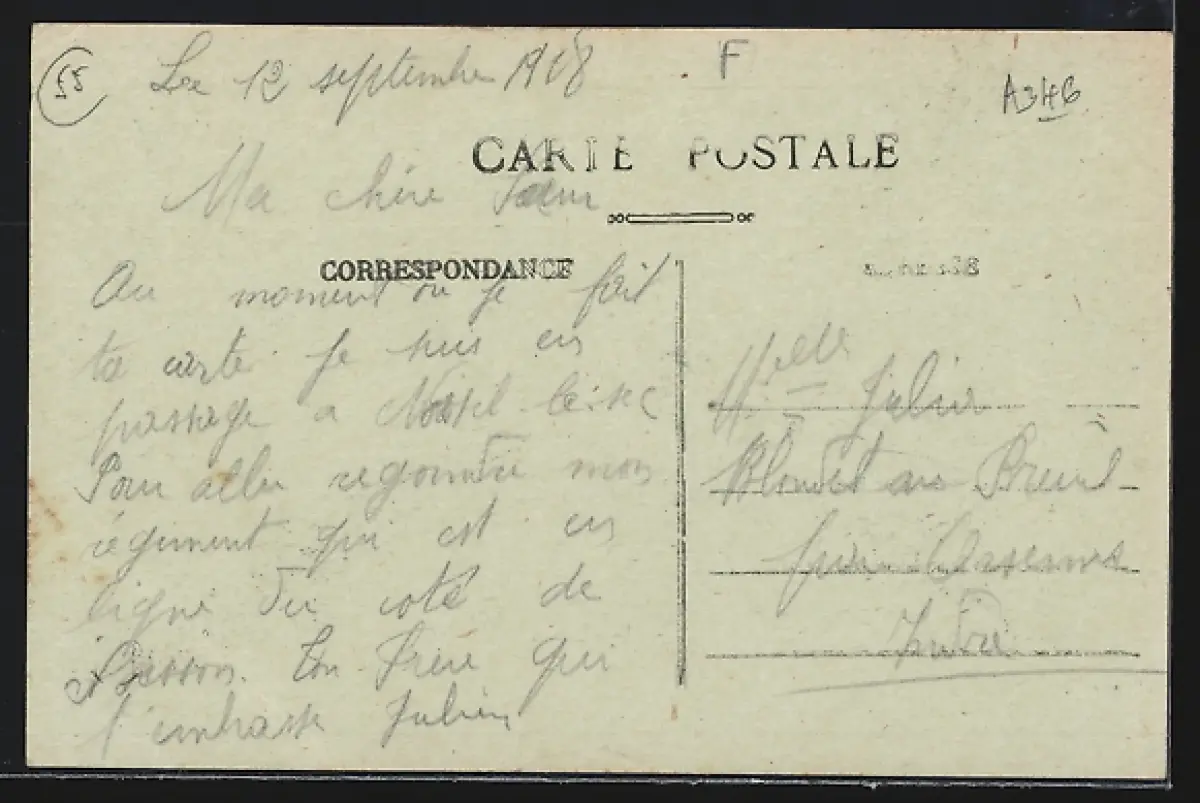 55
Le 12 septembre 1918
F
A346
CARTE POSTALE
Ma chère Sœur
CORRESPONDANCE
Au moment ou je fait
ta carte je suis en
passage a
Pour aller regoindre mon
régiment qui est en
ligne du coté de
Ton Frère qui
t'embrasse Julien
Melle Julia
Blondet au Breuil
Indre